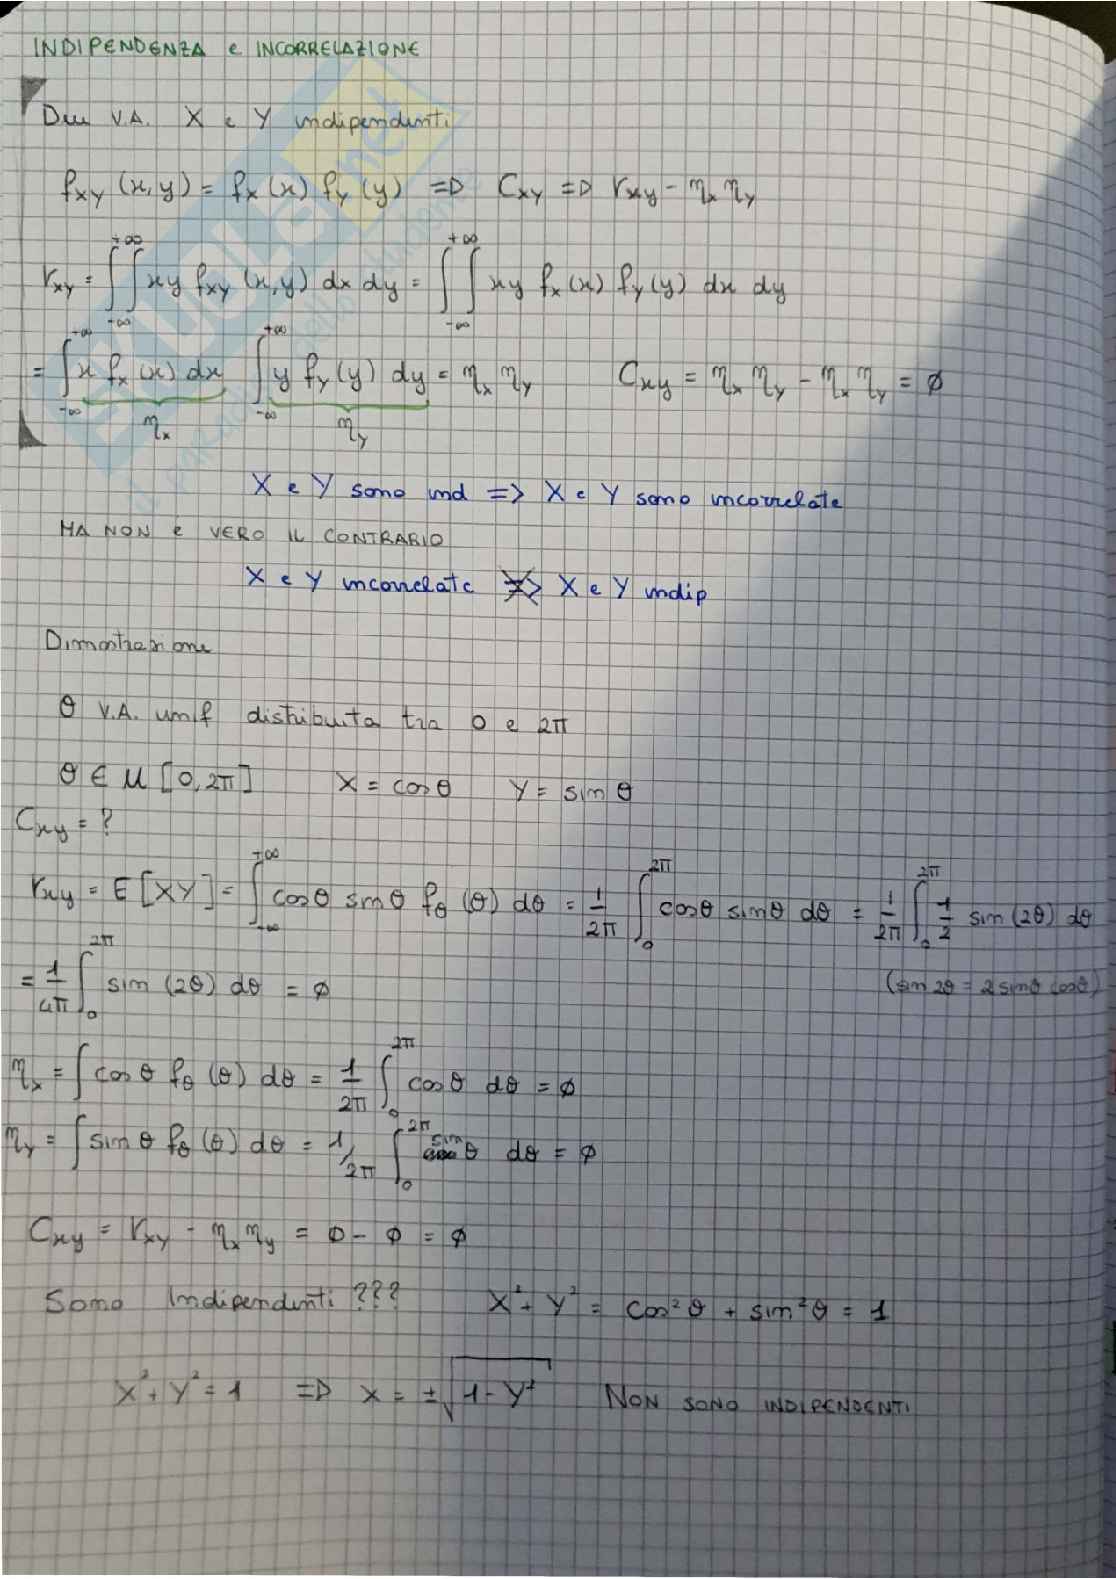 INDIPENDENZA e INCORRELAZIONE
Due V.A. X e Y indipendenti
fxy (x,y) = fx(x) fy(y) => Cxy => rxy - ηx ηy
rxy = ∫∫ -∞ +∞ xy fxy (x,y) dx dy = ∫∫ -∞ +∞ xy fx(x) fy(y) dx dy
= ∫ -∞ +∞ x fx(x) dx ∫ -∞ +∞ y fy(y) dy = ηx ηy Cxy = ηx ηy - ηx ηy = ø
ηx ηy
X e Y sono ind => X e Y sono incorrelate
MA NON e VERO IL CONTRARIO
X e Y incorrelate ≠> X e Y indip
Dimostrazione
θ V.A. unif distribuita tra 0 e 2π
θ ∈ U [0,2π] X = cosθ Y = sinθ
Cxy = ?
rxy = E[XY] = ∫ -∞ +∞ cosθ sinθ fθ(θ) dθ = 1/2π ∫ 0 2π cosθ sinθ dθ = 1/2π ∫ 0 2π 1/2 sin(2θ) dθ
= 1/4π ∫ 0 2π sin(2θ) dθ = ø (sin2θ = 2sinθ cosθ)
ηx = ∫ cosθ fθ(θ) dθ = 1/2π ∫ 0 2π cosθ dθ = ø
ηy = ∫ sinθ fθ(θ) dθ = 1/2π ∫ 0 2π sinθ dθ = ø
Cxy = rxy - ηx ηy = ø - ø = ø
Sono Indipendenti ??? X² + Y² = cos²θ + sin²θ = 1
X² + Y² = 1 => X = ±√1-Y² NON SONO INDIPENDENTI